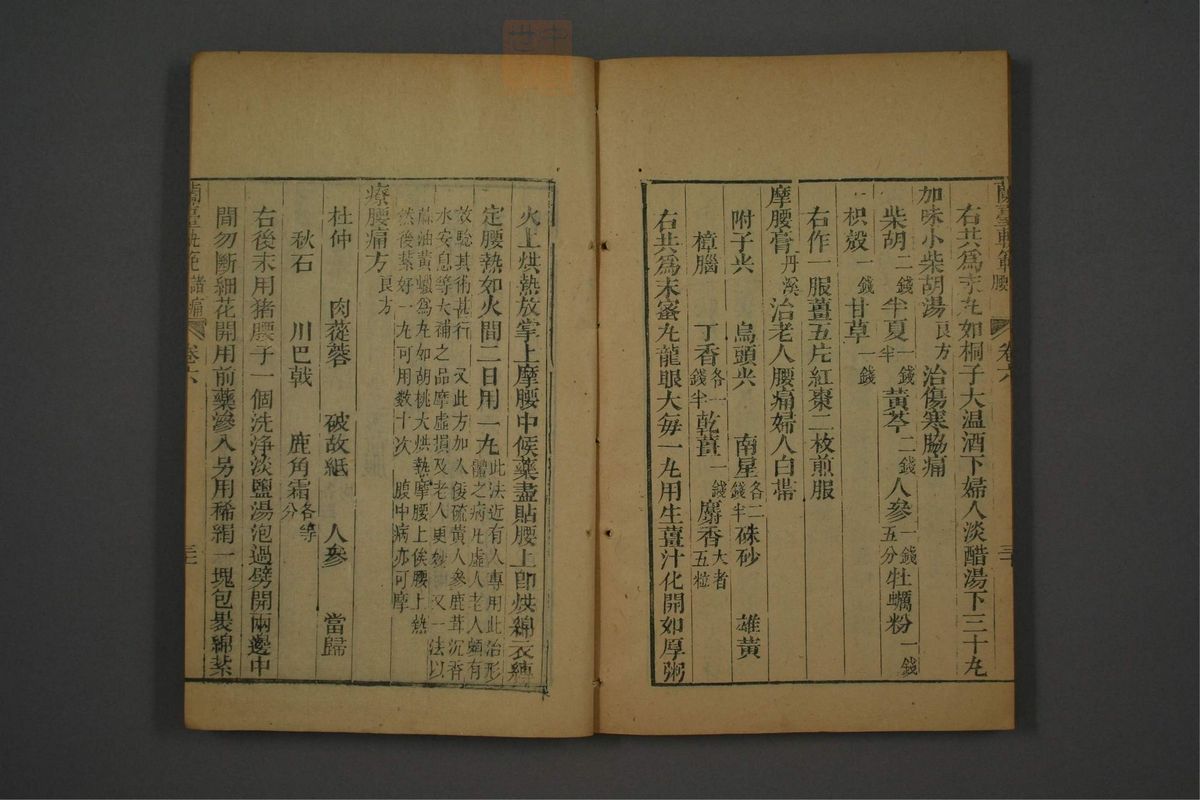 蘭臺軌範 腰 卷六 三十
右共爲末丸如桐子大温酒下婦人淡醋湯下三十丸
加味小柴胡湯良方治傷寒脇痛
柴胡二錢 半夏一錢半 黃芩二錢 人參一錢五分 牡蠣粉一錢
枳殼一錢 甘草一錢
右作一服薑五片紅棗二枚煎服
摩腰膏丹溪治老人腰痛婦人白帶
附子尖 烏頭尖 南星各二錢半 硃砂 雄黃
樟腦 丁香各一錢半 乾薑一錢 麝香大者五粒
右共爲末蜜丸龍眼大每一丸用生薑汁化開如厚粥
火上烘熱放掌上摩腰中候藥盡貼腰上卽烘綿衣纏
定腰熱如火間二日用一丸此法近有人專用此治形體之病凡虛人老人頗有
效騐其術甚行 又此方加入倭硫黃人參鹿茸沉香
水安息等大補之品摩虛損及老人更妙 又一法以
蔴油黃蠟爲丸如胡桃大烘熱摩腰上俟腰上熱
然後紮好一丸可用数十次 腹中病亦可摩
療腰痛方良方
杜仲 肉蓯蓉 破故紙 人參 當歸
秋石 川巴戟 鹿角霜各等分
右後末用猪腰子一個洗淨淡鹽湯泡過劈開兩邊中
間勿斷細花開用前藥滲入另用稀絹一塊包裹綿紮
蘭臺軌範 諸痛 卷六